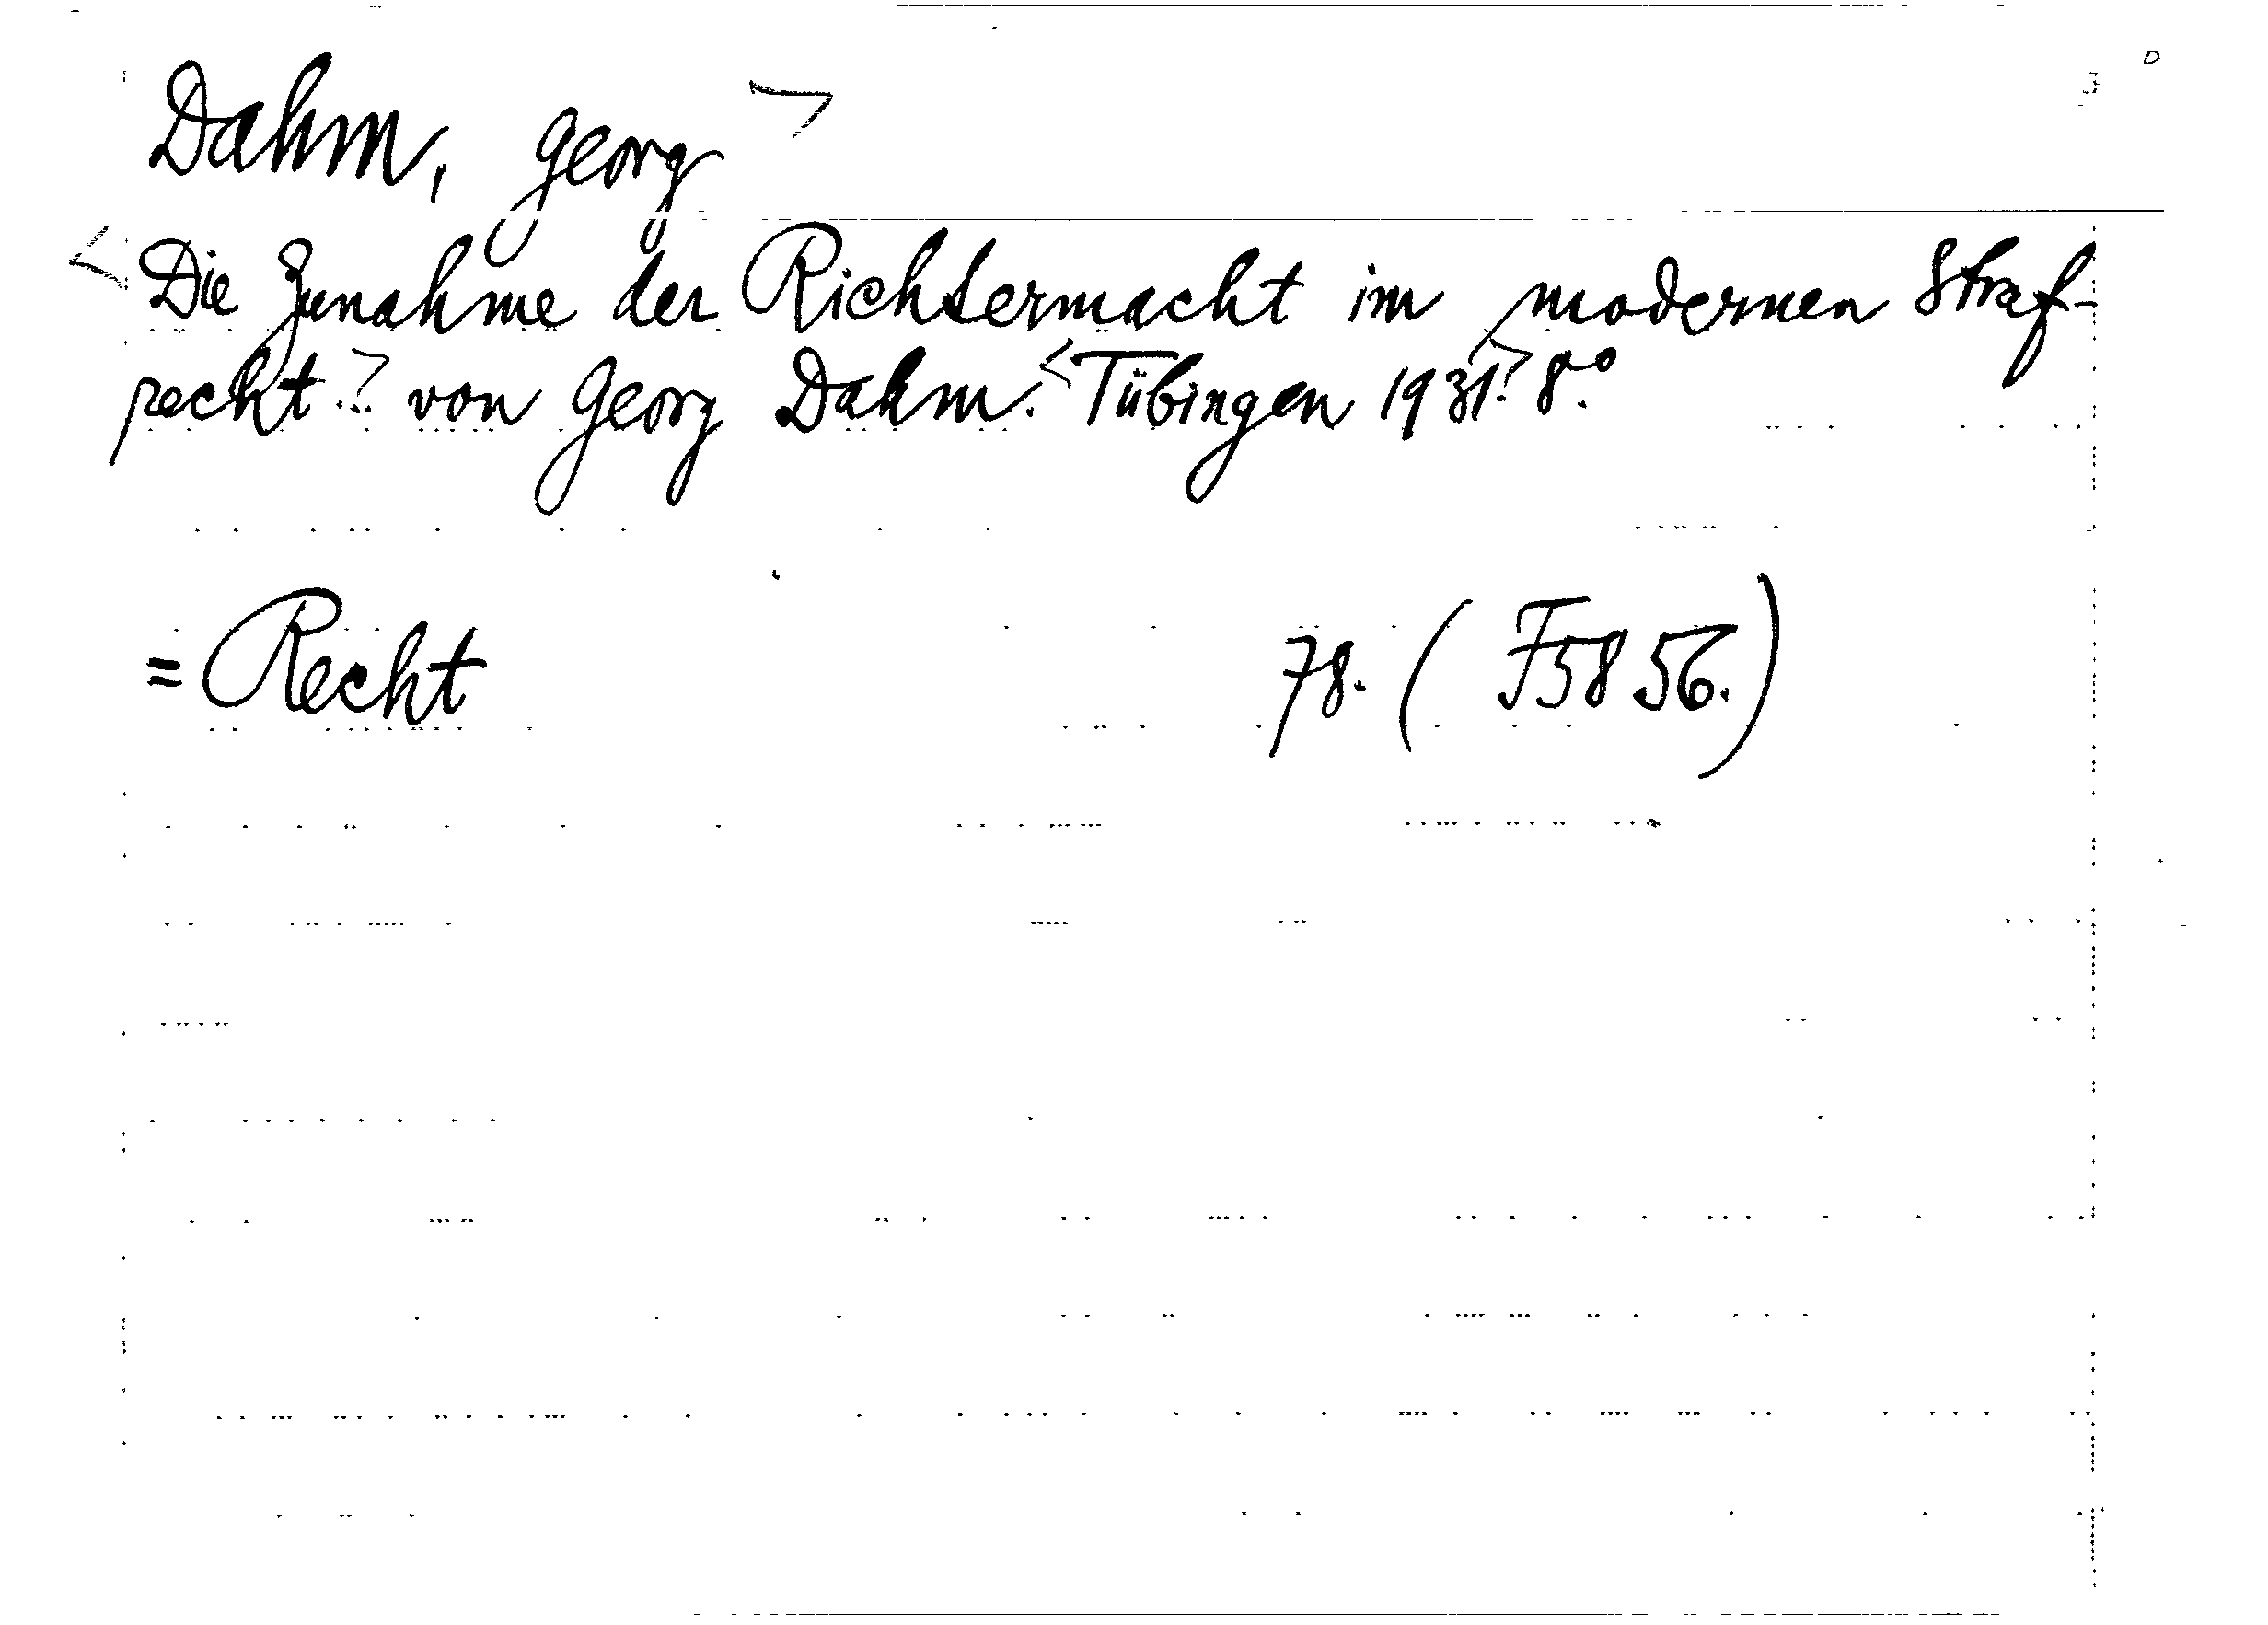 Dahm, Georg >
< Die Zunahme der Richtermacht im modernen Straf-
recht.> von Georg Dahm. < Tübingen 1931.> 8.°
= Recht 78. ( F5856.)